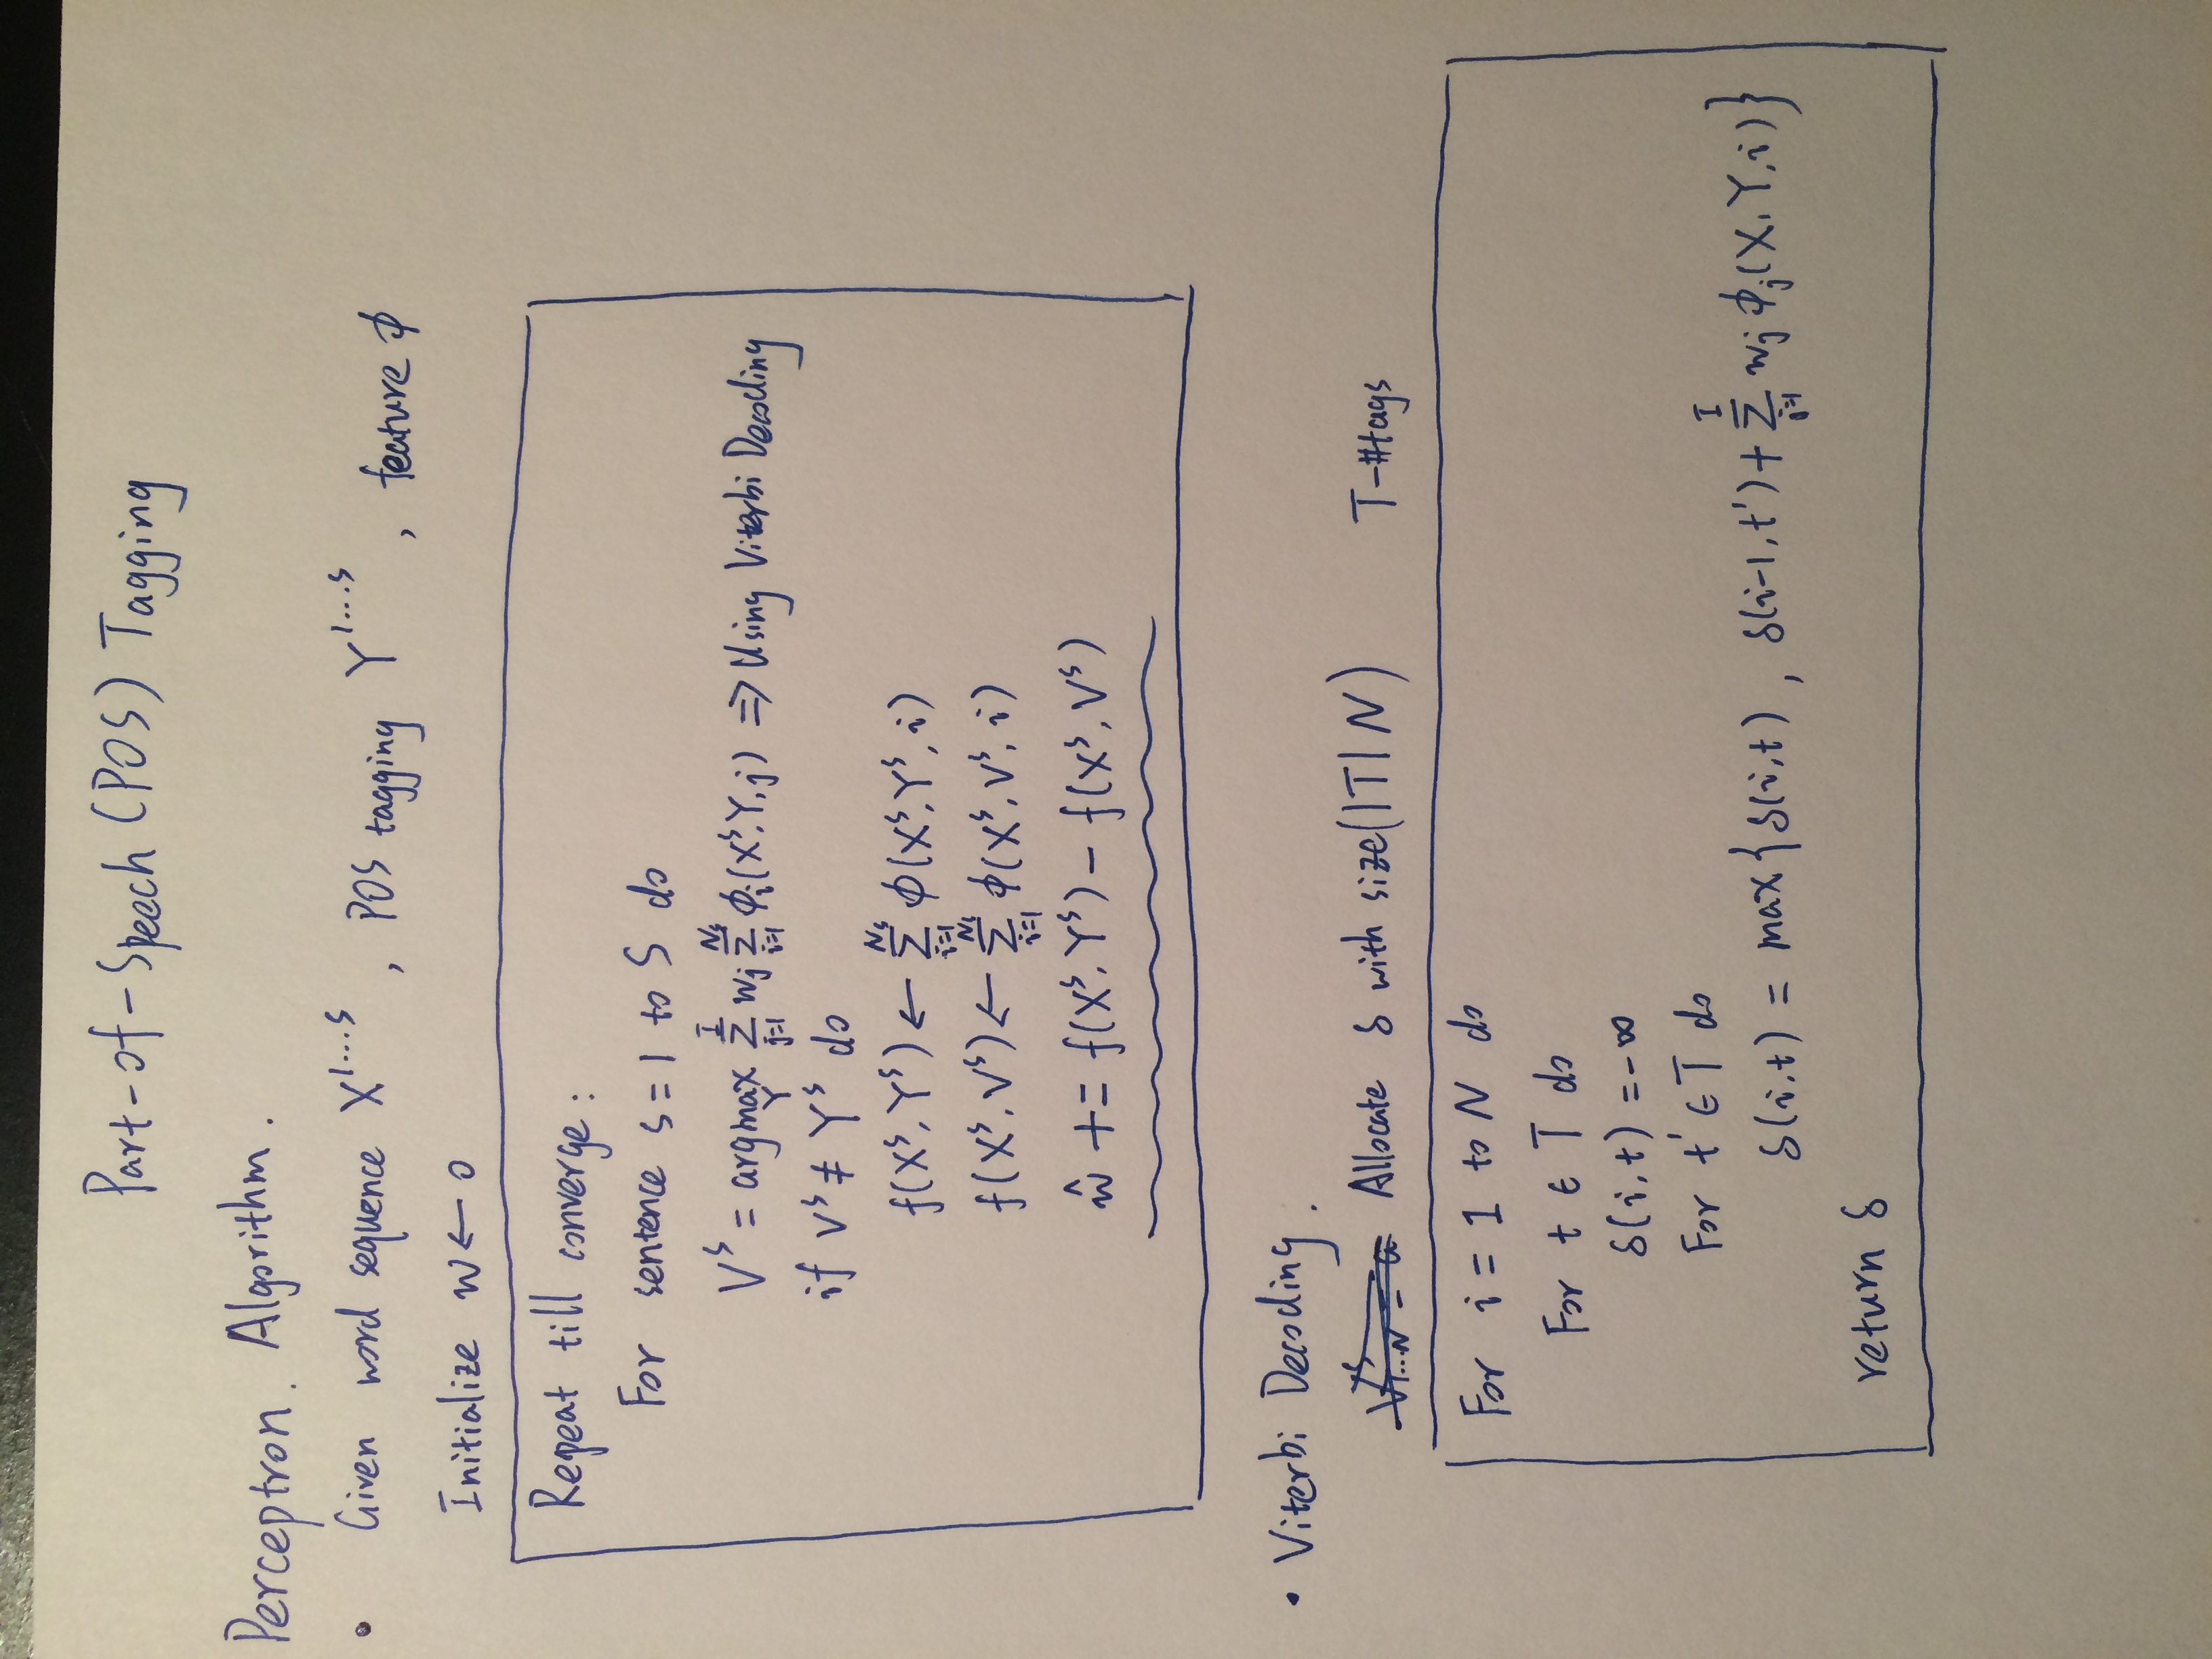 Part-of-Speech (POS) Tagging
Perceptron. Algorithm.
• Given word sequence X^{1...S}, POS tagging Y^{1...S}, feature ϕ
Initialize w ← 0
Repeat till converge:
For sentence s = 1 to S do
V^s = argmax_Y Σ_{j=1}^{I} w_j Σ_{i=1}^{N_s} ϕ_i(X^s, Y, j) ⇒ Using Viterbi Decoding
if V^s ≠ Y^s do
f(X^s, Y^s) ← Σ_{i=1}^{N_s} ϕ(X^s, Y^s, i)
f(X^s, V^s) ← Σ_{i=1}^{N_s} ϕ(X^s, V^s, i)
ŵ += f(X^s, Y^s) − f(X^s, V^s)
• Viterbi Decoding.
Allocate δ with size(|T| N) T-#tags
For i = 1 to N do
For t ∈ T do
δ(i, t) = -∞
For t' ∈ T do
δ(i, t) = max{δ(i, t), δ(i-1, t') + Σ_{j=1}^{I} w_j ϕ_j(X, Y, i)}
return δ